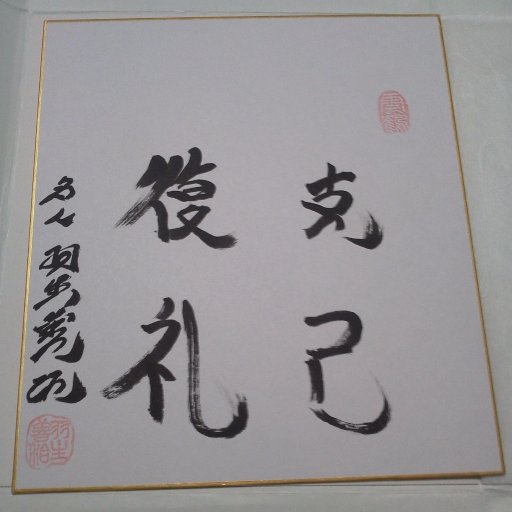 克己
復礼
名人 羽生善治
羽生善治